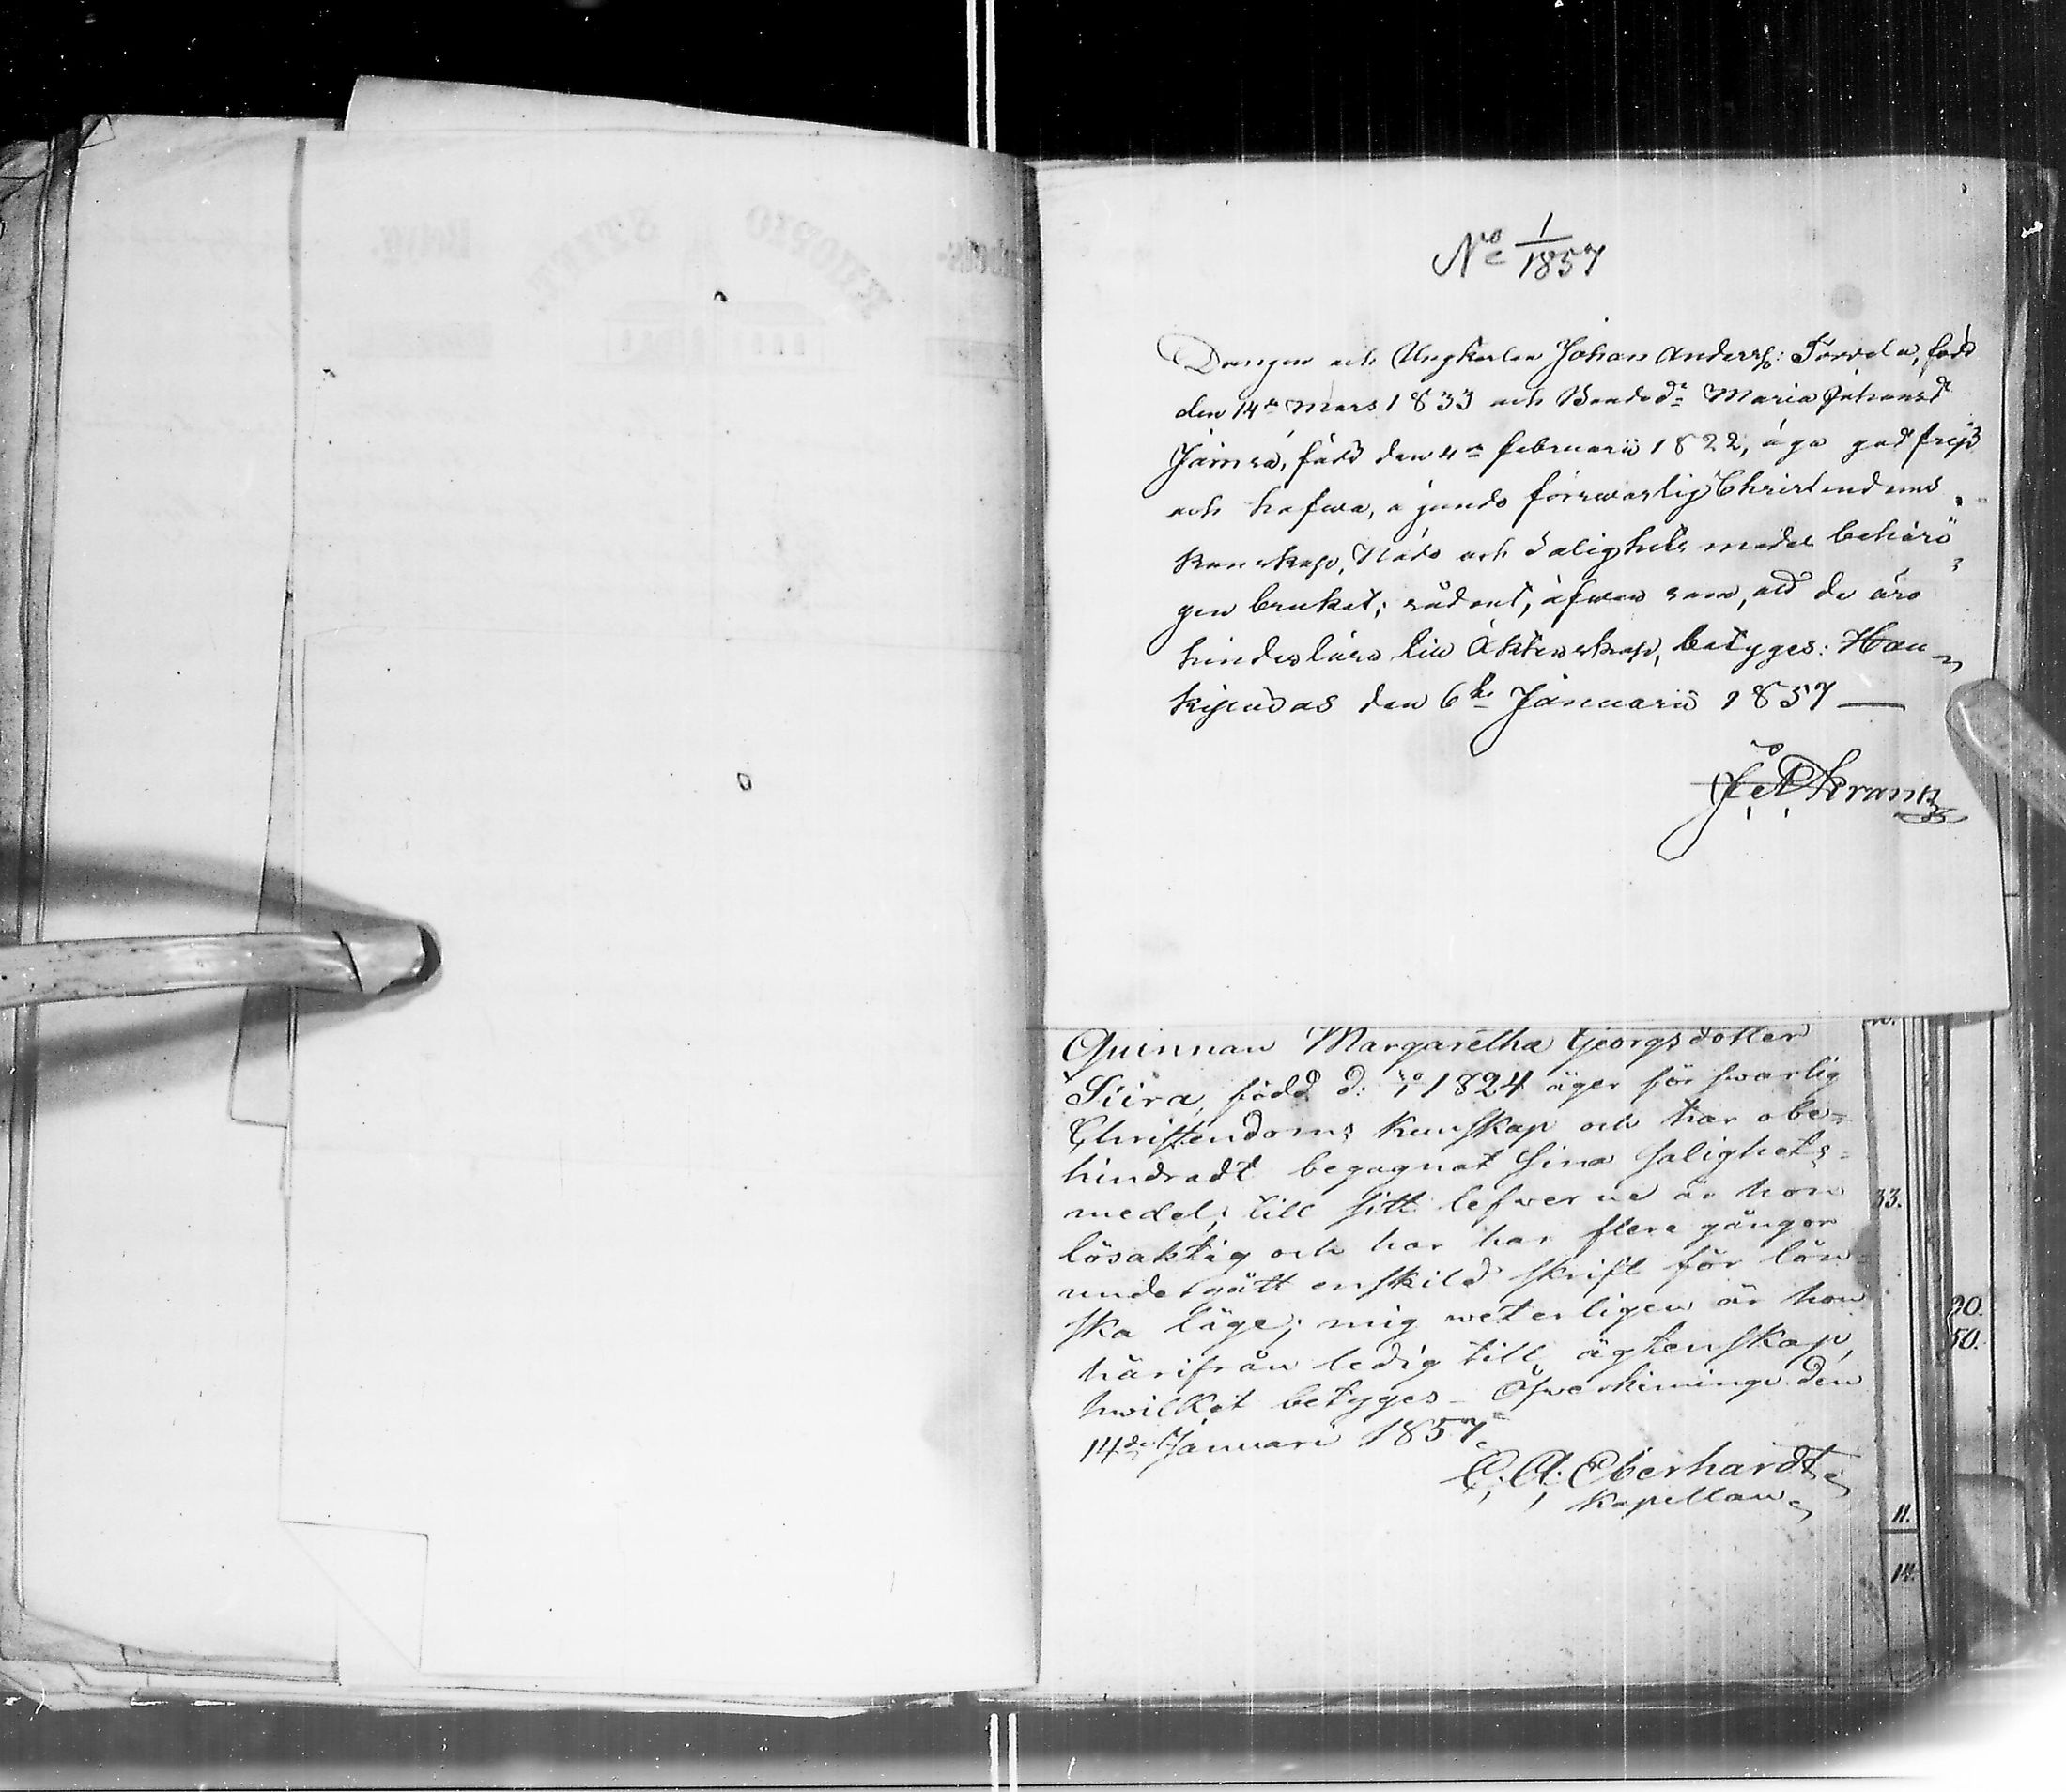 No 1/1857
Drengen och Ungkarlen Johan Anderss: Torvela, född
den 14de Mars 1833 och Bonded:r Maria Johansd:r
Jämsä, född den 4de Februarii 1822, äga god frejd
och hafwa, ägande förswarlig Christendoms
kunskap, Nåde och Salighets medel behöri-
gen brukat; sådant, äfwen som, att de äro
hinderslöse till Äktenskap, betyges: Hau-
kipudas den 6te Januarii 1857 —
J. A. Krank
Quinnan Margaretha Georgsdotter
Siira, född d: 1824 äger förswarlig
Christendoms kunskap och har obe-
hindradt begagnat sina salighets-
medel; till sitt lefwerne är hon
lösaktig och har har flere gångor
undergått enskild skrift för lön-
ska läge; mig weterligen är hon
härifrån ledig till ägtenskap,
hwilket betyges - Öfwerkiminge den
14de Januari 1857
C. A. Eberhardt
Kapellan
33.
20.
50.
11.
14.
KUOPIO STIFT